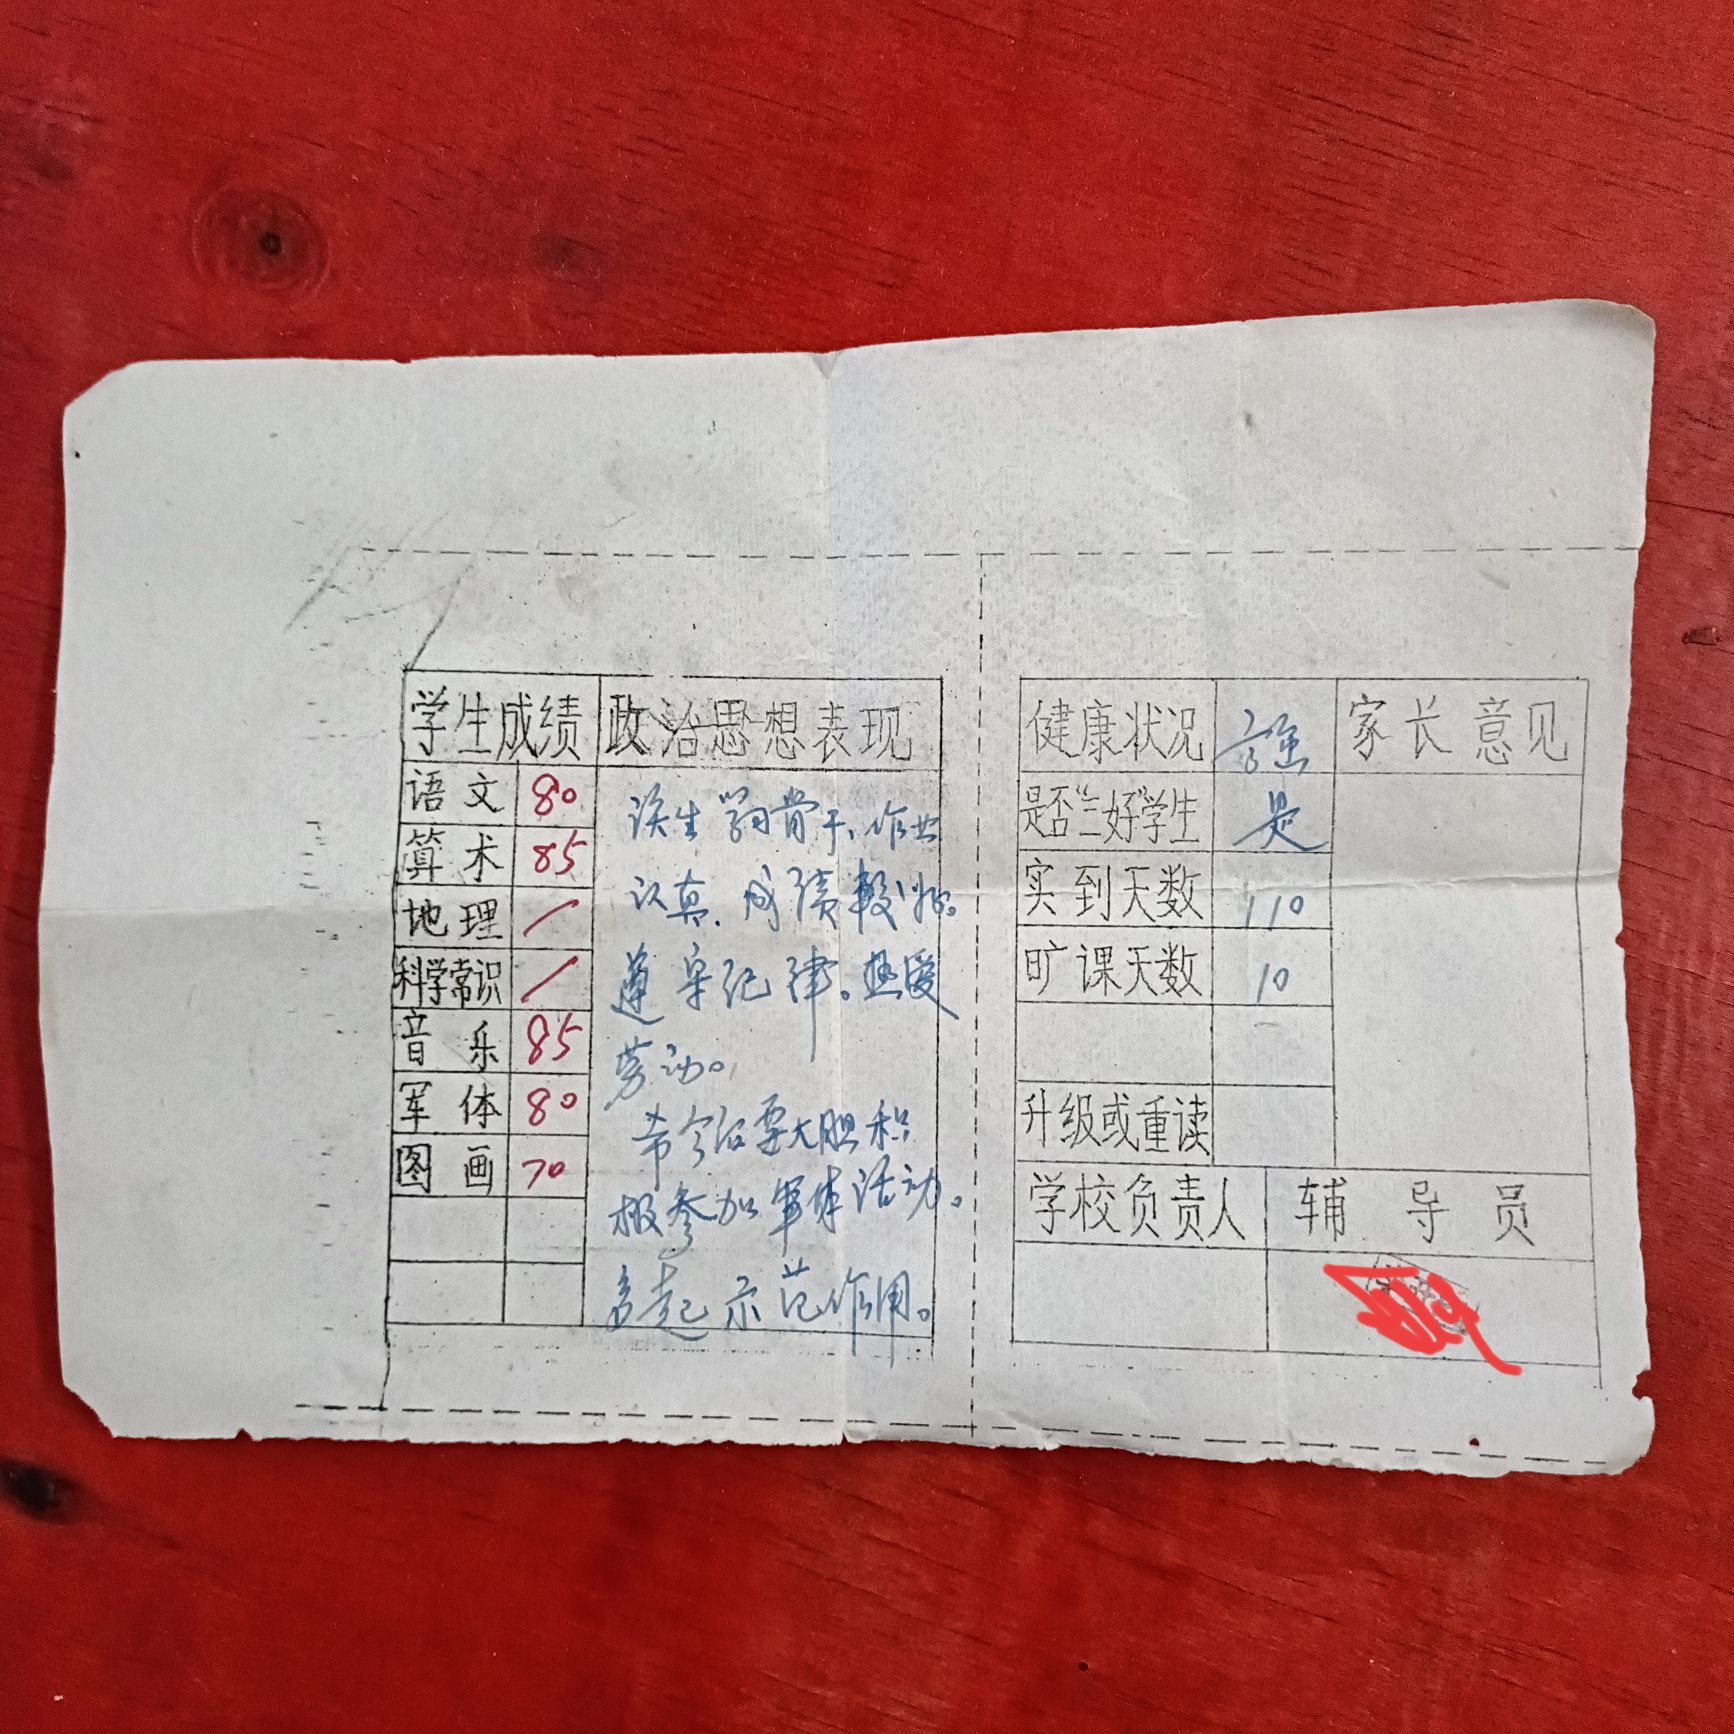 学生成绩 政治思想表现
语文 80
算术 85
地理 /
科学常识 /
音乐 85
军体 80
图画 70
该生学习骨干、作业
认真.成绩较好。
遵守纪律。热爱
劳动。
希今后要大胆积
极参加军体活动。
多起示范作用。
健康状况 强 家长意见
是否"三好"学生 是
实到天数 110
旷课天数 10
升级或重读
学校负责人 辅导员